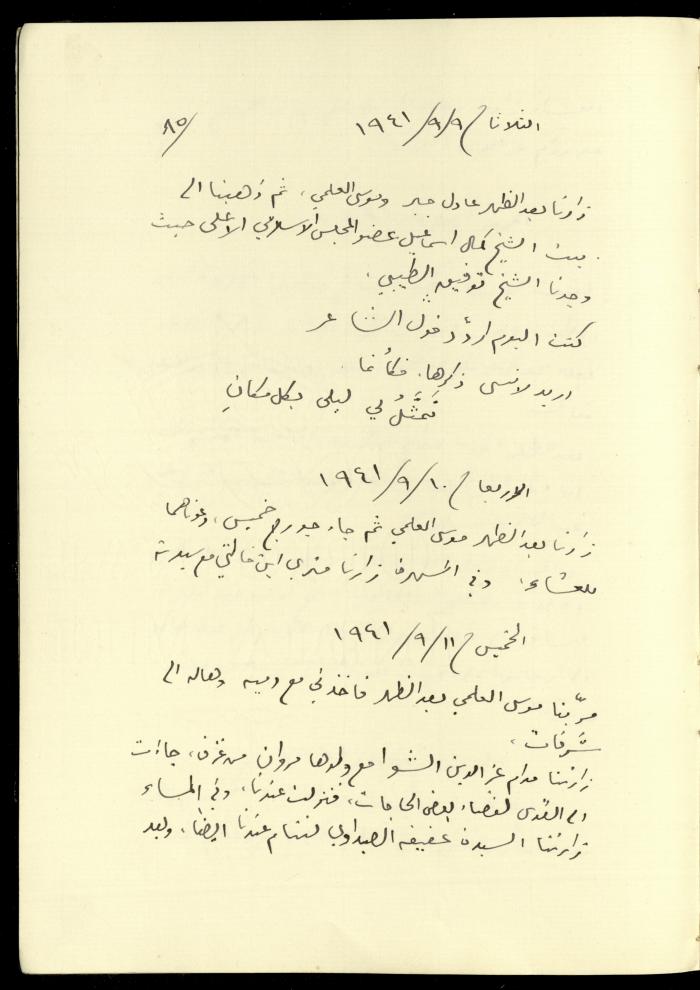 الثلاثاء ٩/٩/١٩٤١
٨٥/
زارنا بعد الظهر عادل جبر وموسى العلمي، ثم ذهبنا الى
بيت الشيخ كمال اسماعيل عضو المجلس الاسلامي الاعلى حيث
وجدنا الشيخ توفيق الطيبي.
كنت اليوم اردّد قول الشاعر
اريد لانسى ذكرها. فكأنما
تَمَثَّلُ لي ليلى بكل مكانِ
الاربعاء ١٠/٩/١٩٤١
زارنا بعد الظهر موسى العلمي ثم جاء جورج خميس، دعوناهما
للعشاء. وفي السهرة زارنا منري ابن خالتي مع سيدته
الخميس ١١/٩/١٩٤١
مرّ بنا موسى العلمي بعد الظهر فاخذني مع وهاله الى
شرفات.
زارتنا مدام عز الدين الشوا مع ولدها مروان من غزة، جاءت
الى القدس لقضاء بعض الحاجات، فنزلت عندنا، وفي المساء
زارتنا السيدة عفيفه الصيداوي لتنام عندنا ايضاً، وبعد